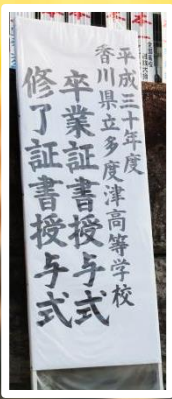 平成三十年度
香川県立多度津高等学校
卒業証書授与式
修了証書授与式